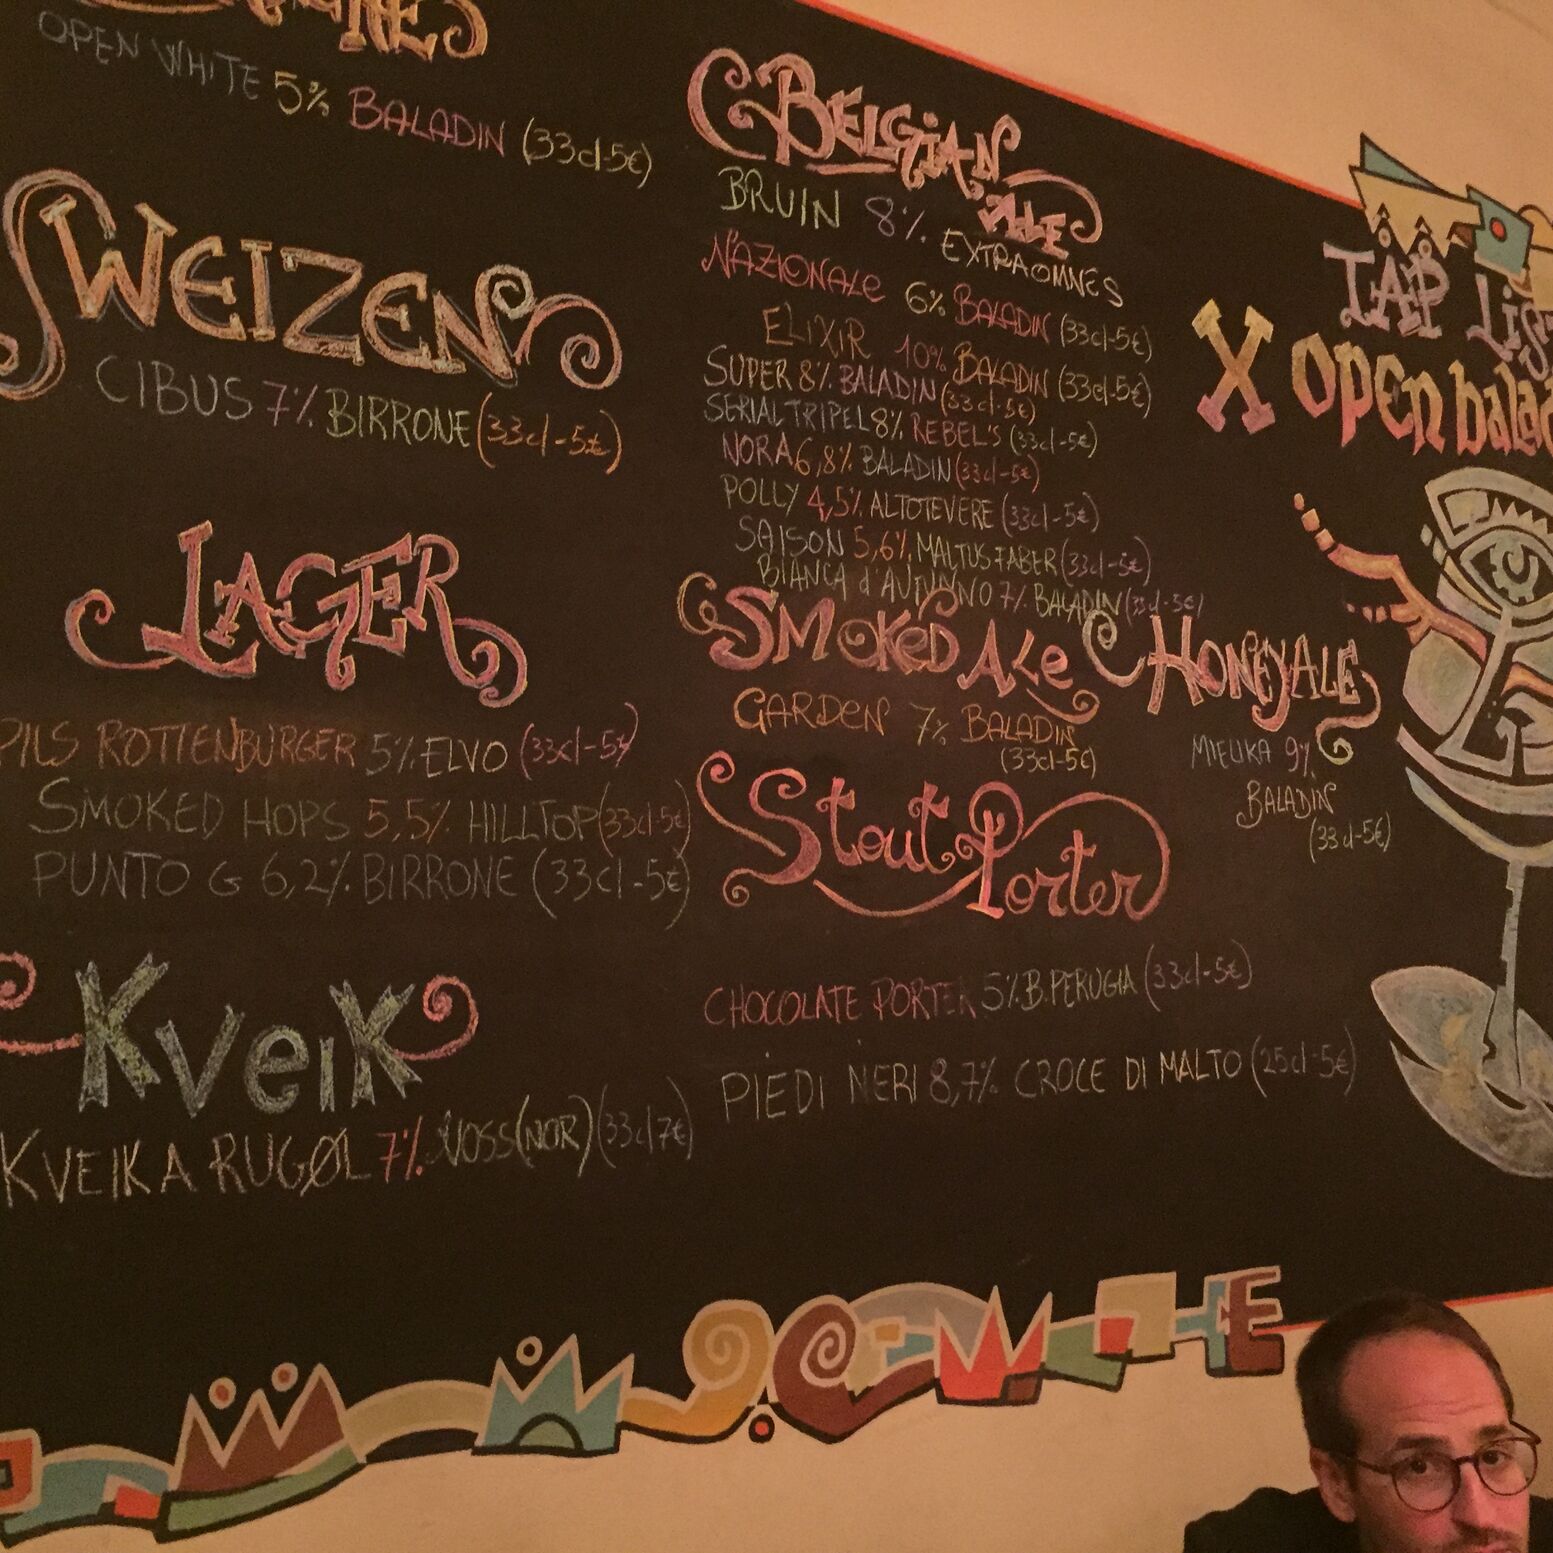 OPEN WHITE 5% BALADIN (33cl-5€)
WEIZEN
CIBUS 7% BIRRONE (33cl-5€)
LAGER
PILS ROTTENBURGER 5% ELVO (33cl-5€)
SMOKED HOPS 5,5% HILLTOP (33cl-5€)
PUNTO G 6,2% BIRRONE (33cl-5€)
KVEIK
KVEIK A RUGØL 7% VOSS (NOR) (33cl 7€)
BELGIAN
ALE
BRUIN 8% EXTRAOMNES
NAZIONALE 6% BALADIN (33cl-5€)
ELIXIR 10% BALADIN (33cl-5€)
SUPER 8% BALADIN (33cl-5€)
SERIAL TRIPEL 8% REBEL'S (33cl-5€)
NORA 6,8% BALADIN (33cl-5€)
POLLY 4,5% ALTOTEVERE (33cl-5€)
SAISON 5,6% MALTUS FABER (33cl-5€)
BIANCA d 7% BALADIN (33cl-5€)
SMOKED ALE
GARDEN 7% BALADIN
(33cl-5€)
HONEY ALE
MIELIKA 9%
BALADIN
(33cl-5€)
Stout Porter
CHOCOLATE PORTER 5% B. PERUGIA (33cl-5€)
PIEDI NERI 8,7% CROCE DI MALTO (25cl-5€)
TAP LIST
X OPEN